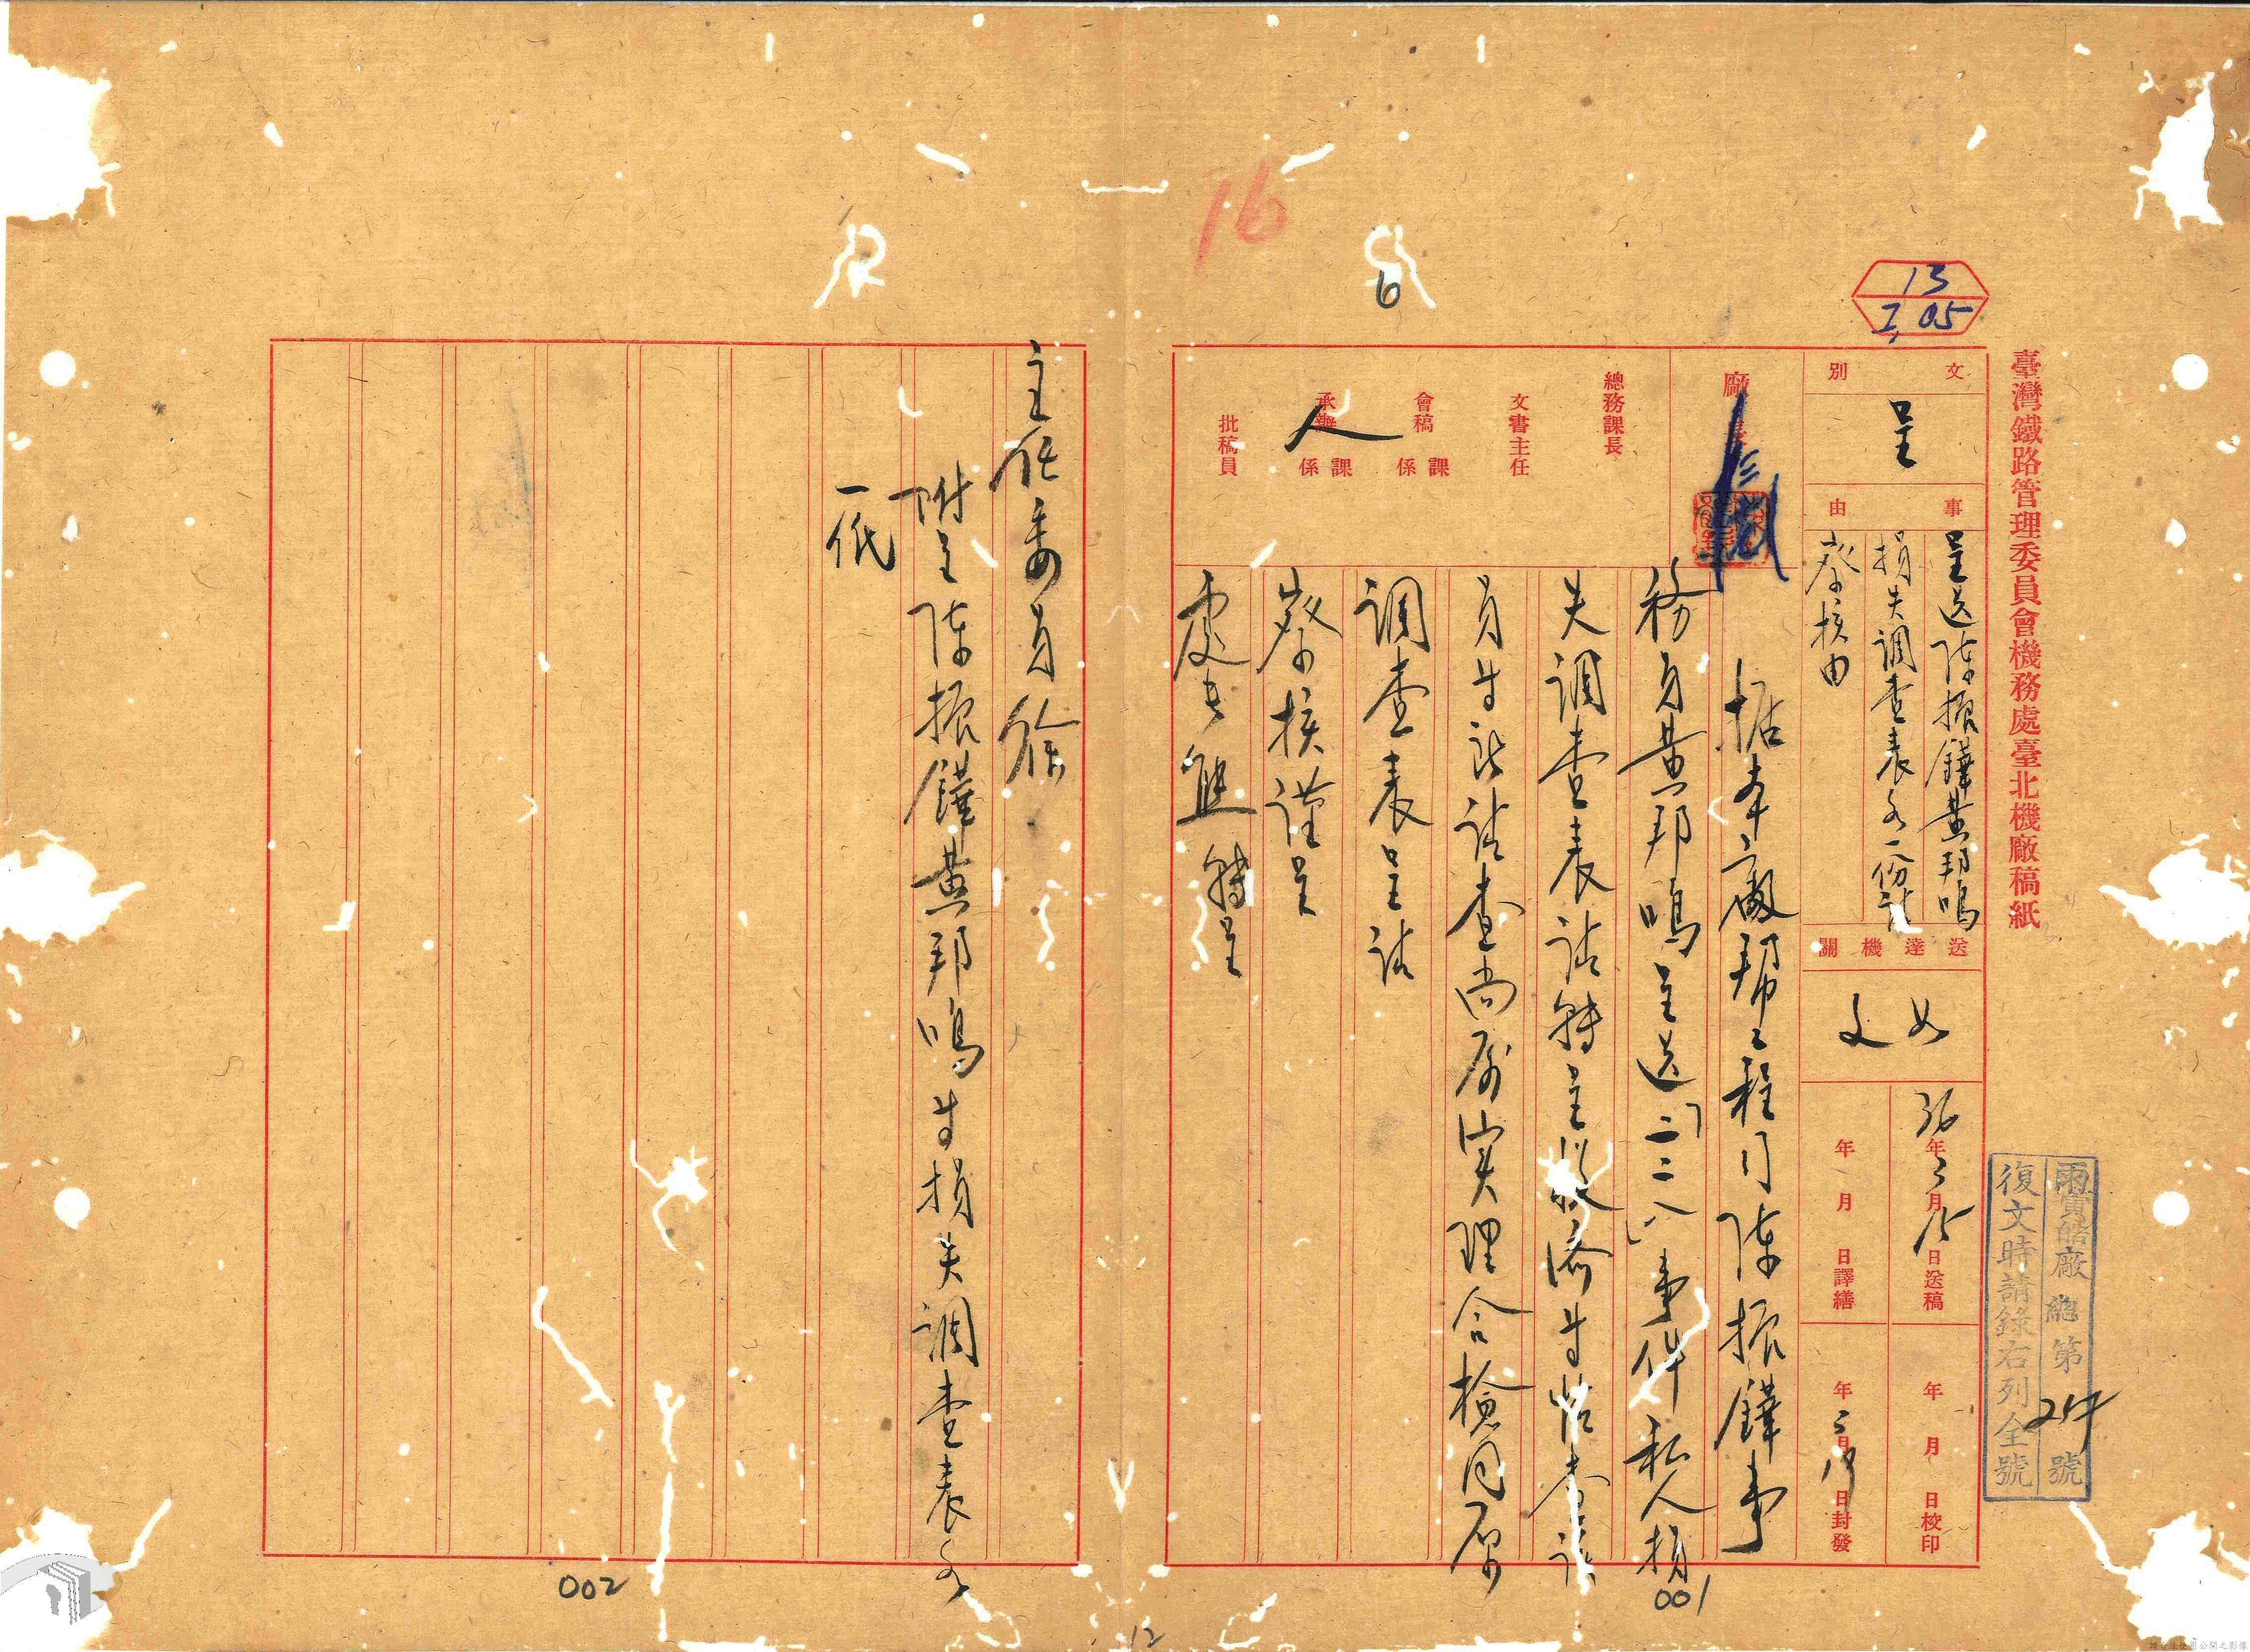 臺灣鐵路管理委員會機務處臺北機廠稿紙
13
I,05
16
6
文別
呈
事由
呈送陳振鏵黃邦鳴
損失調查表各一份計
察核由
送達機關
如文
36年3月15日送稿
年月日譯繕
年月日校印
年3月19日封發
廠長
總務課長
文書主任
會稿 課係
承辦 課係
批稿員
雨寅皓廠總第254號
復文時請錄右列全號
據本廠幫工程司陳振鏵事
務員黃邦鳴呈送「二二八」事件私人損
失調查表請轉呈救濟等情查該
員等所請查尚屬实理合檢同原
調查表呈請
詧核謹呈
處長 轉呈
主任委員徐
附呈陳振鏵黃邦鳴等損失調查表各
一紙
001
002
12